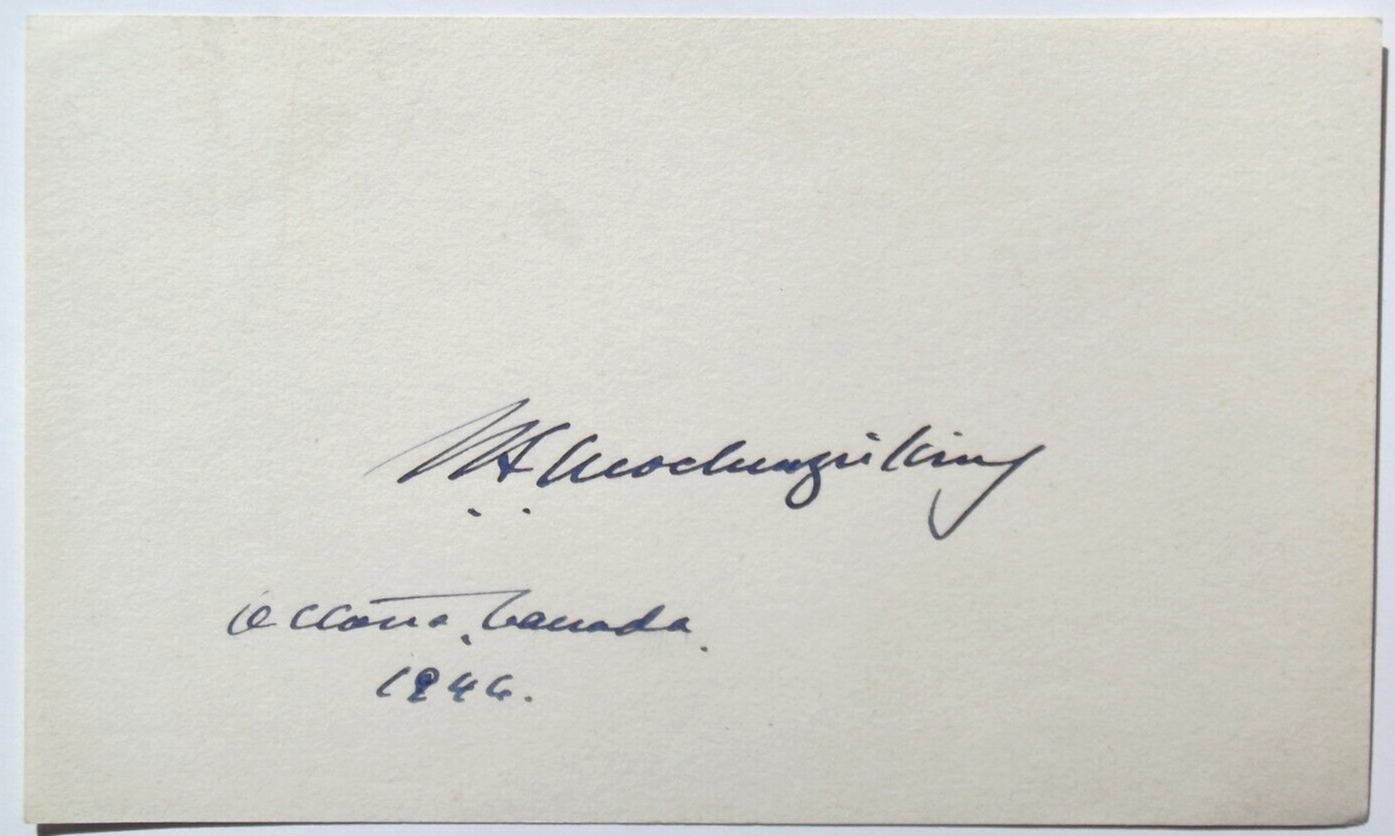 W.L. Mackenzie King
Ottawa, Canada.
1946.